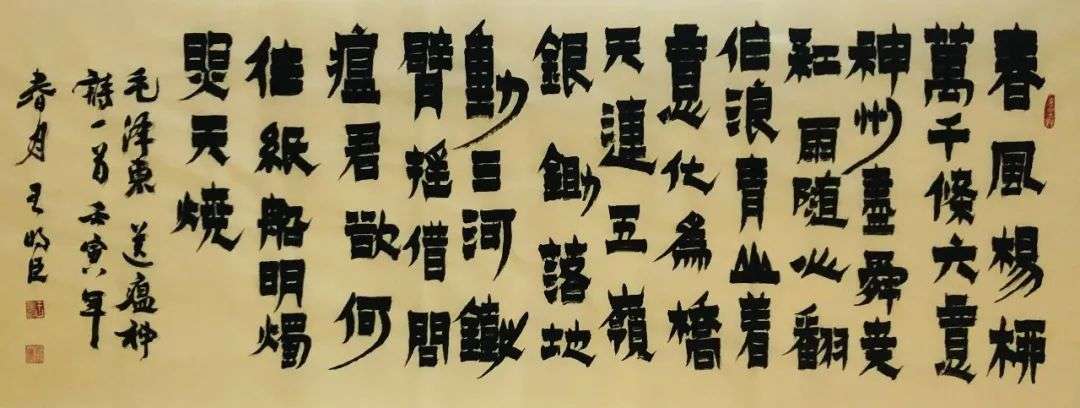 春風楊柳
萬千條六意
神州盡舜堯
紅雨隨心翻
作浪青山着
意化為橋
天連五嶺
銀鋤落地
動三河鐵
臂搖借問
瘟君欲何
往紙船明燭
照天燒
毛泽東送瘟神
詩一首壬寅年
春月王明臣